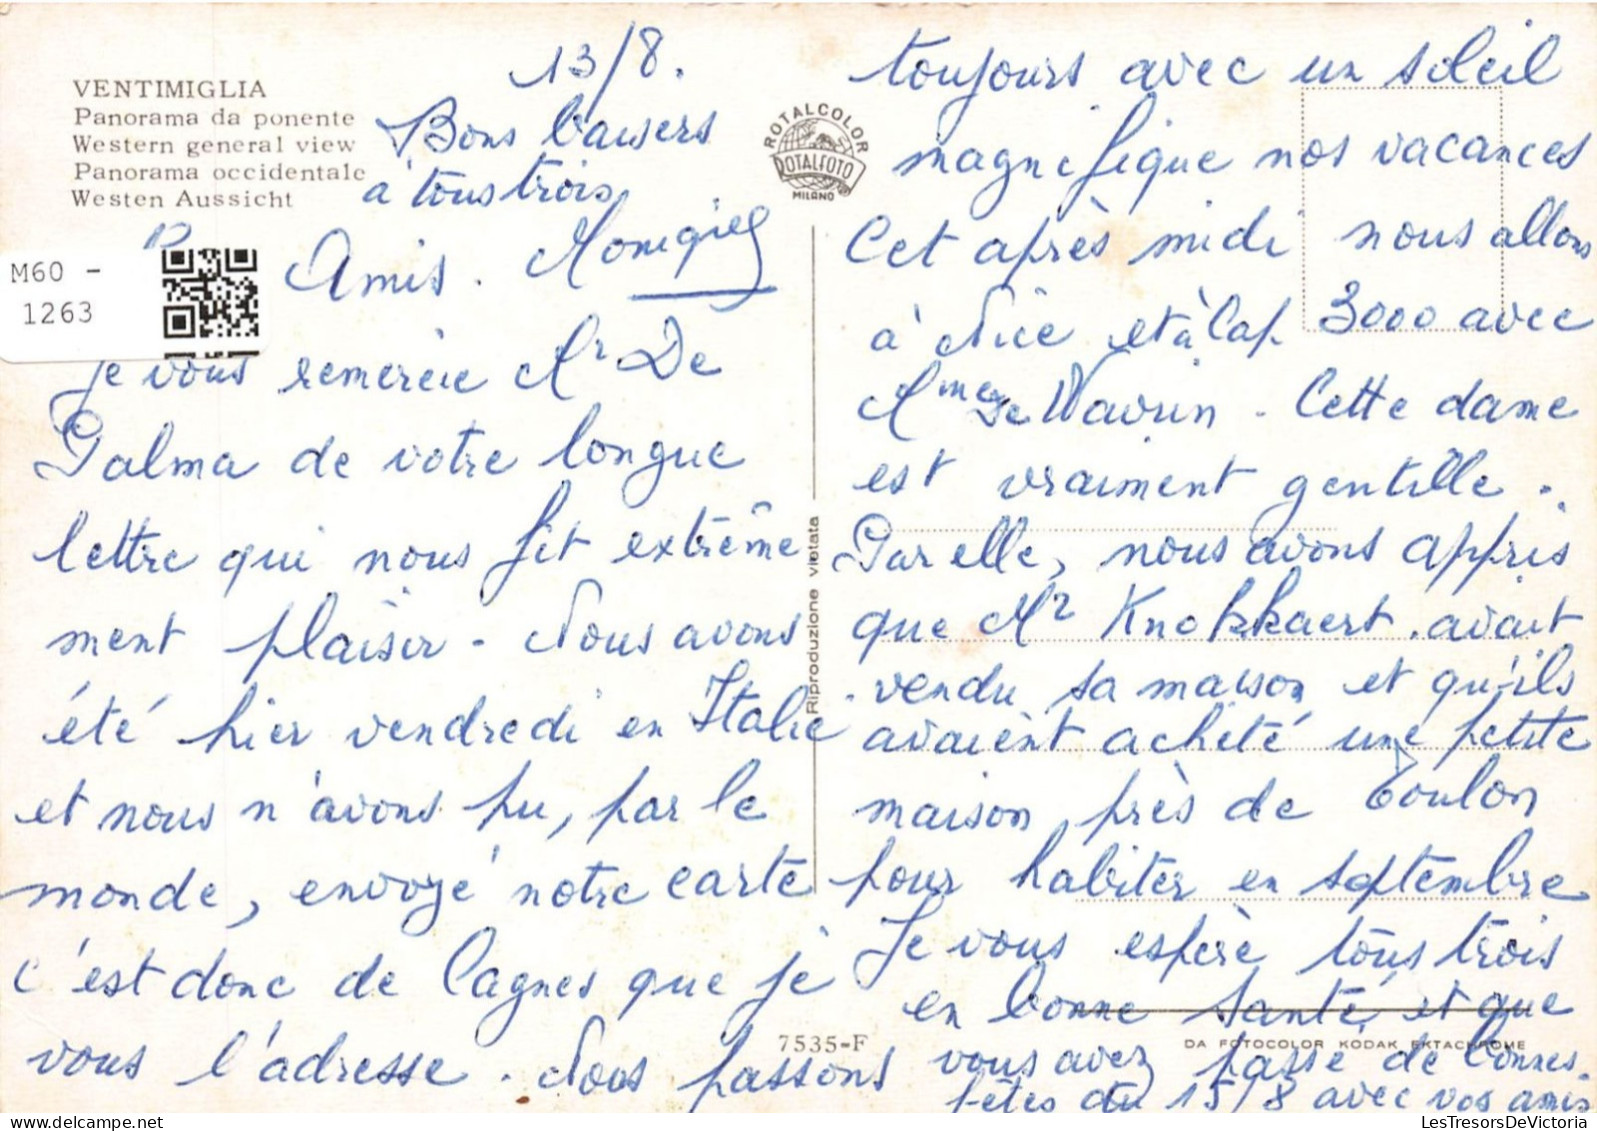 VENTIMIGLIA
Panorama da ponente
Western general view
Panorama occidentale
Westen Aussicht
M60 -
1263
13/8.
Bons baisers
à tous trois
Amis.
Je vous remercie Mr. De
Palma de votre longue
lettre qui nous fit extrême
ment plaisir - Nous avons
été hier vendredi en Italie
et nous n'avons pu, par le
monde, envoyé notre carte
c'est donc de Cagnes que je
vous l'adresse. Nous passons
ROTALCOLOR
ROTALFOTO
MILANO
Riproduzione vietata
7535-F
toujours avec un soleil
magnifique nos vacances
Cet après midi nous allons
à Nice et à Cap 3000 avec
Mme De Wavrin - Cette dame
est vraiment gentille.
Par elle, nous avons appris
que Mr Knokkaert avait
vendu sa maison et qu'ils
avaient acheté une petite
maison près de Toulon
pour habiter en septembre
Je vous espère tous trois
en bonne santé et que
DA FOTOCOLOR KODAK EKTACHROME
vous avez passé de bonnes
fêtes du 15/8 avec vos amis
LesTresorsDeVictoria.com